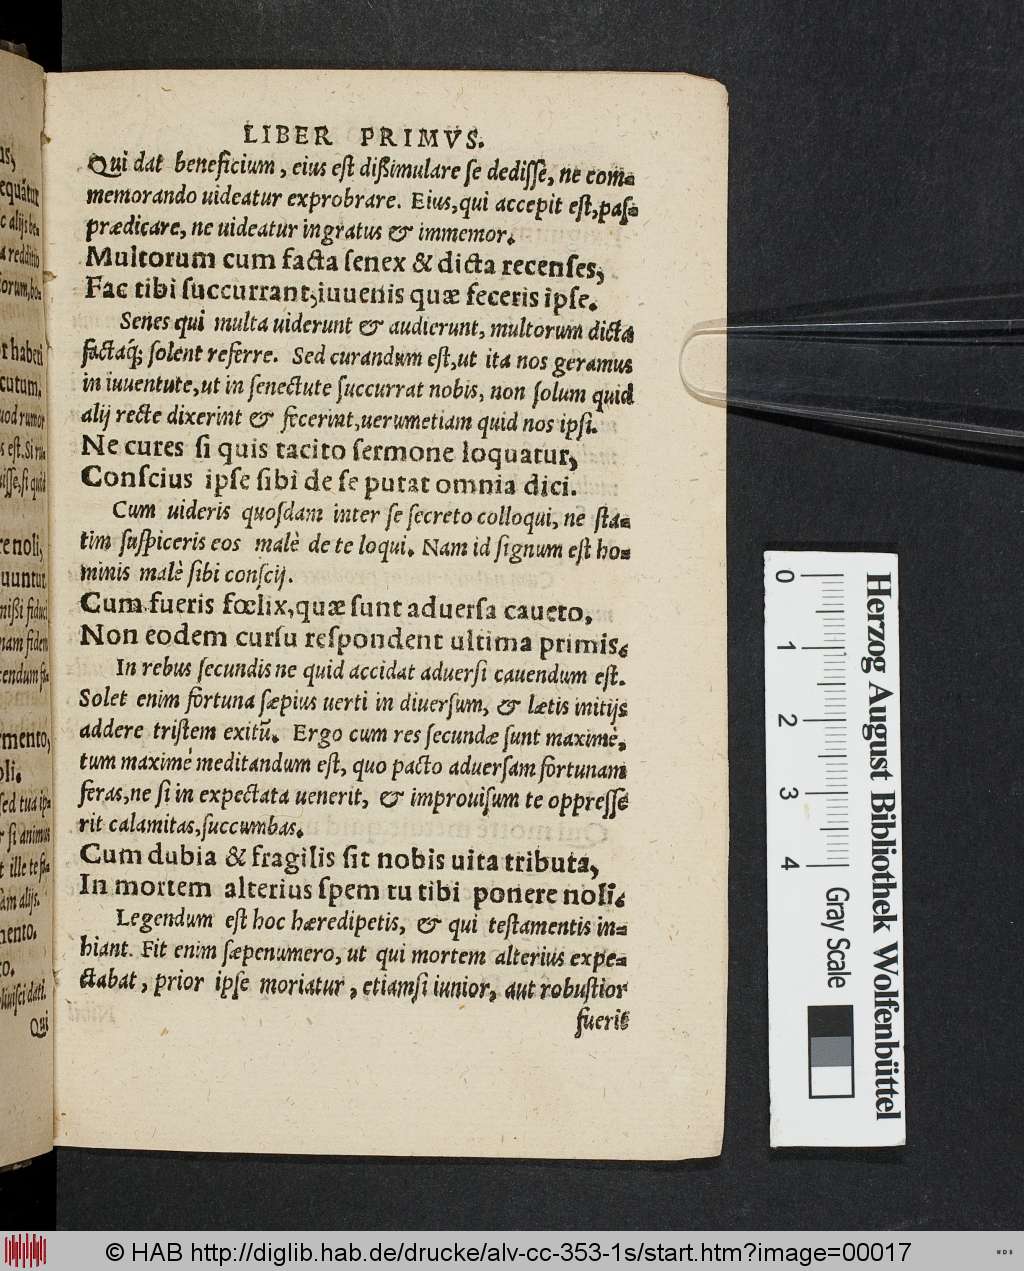 LIBER PRIMVS.
Qui dat beneficium, eius est dißimulare se dedisse, ne com=
memorando uideatur exprobrare. Eius, qui accepit est, pas=
prædicare, ne uideatur ingratus & immemor.
Multorum cum facta senex & dicta recenses,
Fac tibi succurrant, iuuenis quæ feceris ipse.
Senes qui multa uiderunt & audierunt, multorum dicta
factaq́; solent referre. Sed curandum est, ut ita nos geramus
in iuuentute, ut in senectute succurrat nobis, non solum quid
alij recte dixerint & fecerint, uerumetiam quid nos ipsi.
Ne cures si quis tacito sermone loquatur,
Conscius ipse sibi de se putat omnia dici.
Cum uideris quosdam inter se secreto colloqui, ne sta=
tim suspiceris eos malè de te loqui. Nam id signum est ho=
minis malè sibi conscij.
Cum fueris fœlix, quæ sunt aduersa caueto,
Non eodem cursu respondent ultima primis.
In rebus secundis ne quid accidat aduersi cauendum est.
Solet enim fortuna sæpius uerti in diuersum, & lætis initijs
addere tristem exitũ. Ergo cum res secundæ sunt maximè,
tum maximè meditandum est, quo pacto aduersam fortunam
feras, ne si in expectata uenerit, & improuisum te oppresse
rit calamitas, succumbas.
Cum dubia & fragilis sit nobis uita tributa,
In mortem alterius spem tu tibi ponere noli.
Legendum est hoc hæredipetis, & qui testamentis in=
hiant. Fit enim sæpenumero, ut qui mortem alterius expe=
ctabat, prior ipse moriatur, etiamsi iunior, aut robustior
fuerit
equãtur
c alijs be=
a redditio
r habeti
cutum.
uod rumor
s est. Si ru=
isse, si quid
re noli,
uuntur.
nißi fiduci
nam fidem
cendum sit
mento,
oli.
sed tua ip=
r si animus
t ille te
àm alijs.
mento.
to.
dati.
Qui
0
1
2
3
4
Gray Scale
Herzog August Bibliothek Wolfenbüttel
© HAB http://diglib.hab.de/drucke/alv-cc-353-1s/start.htm?image=00017